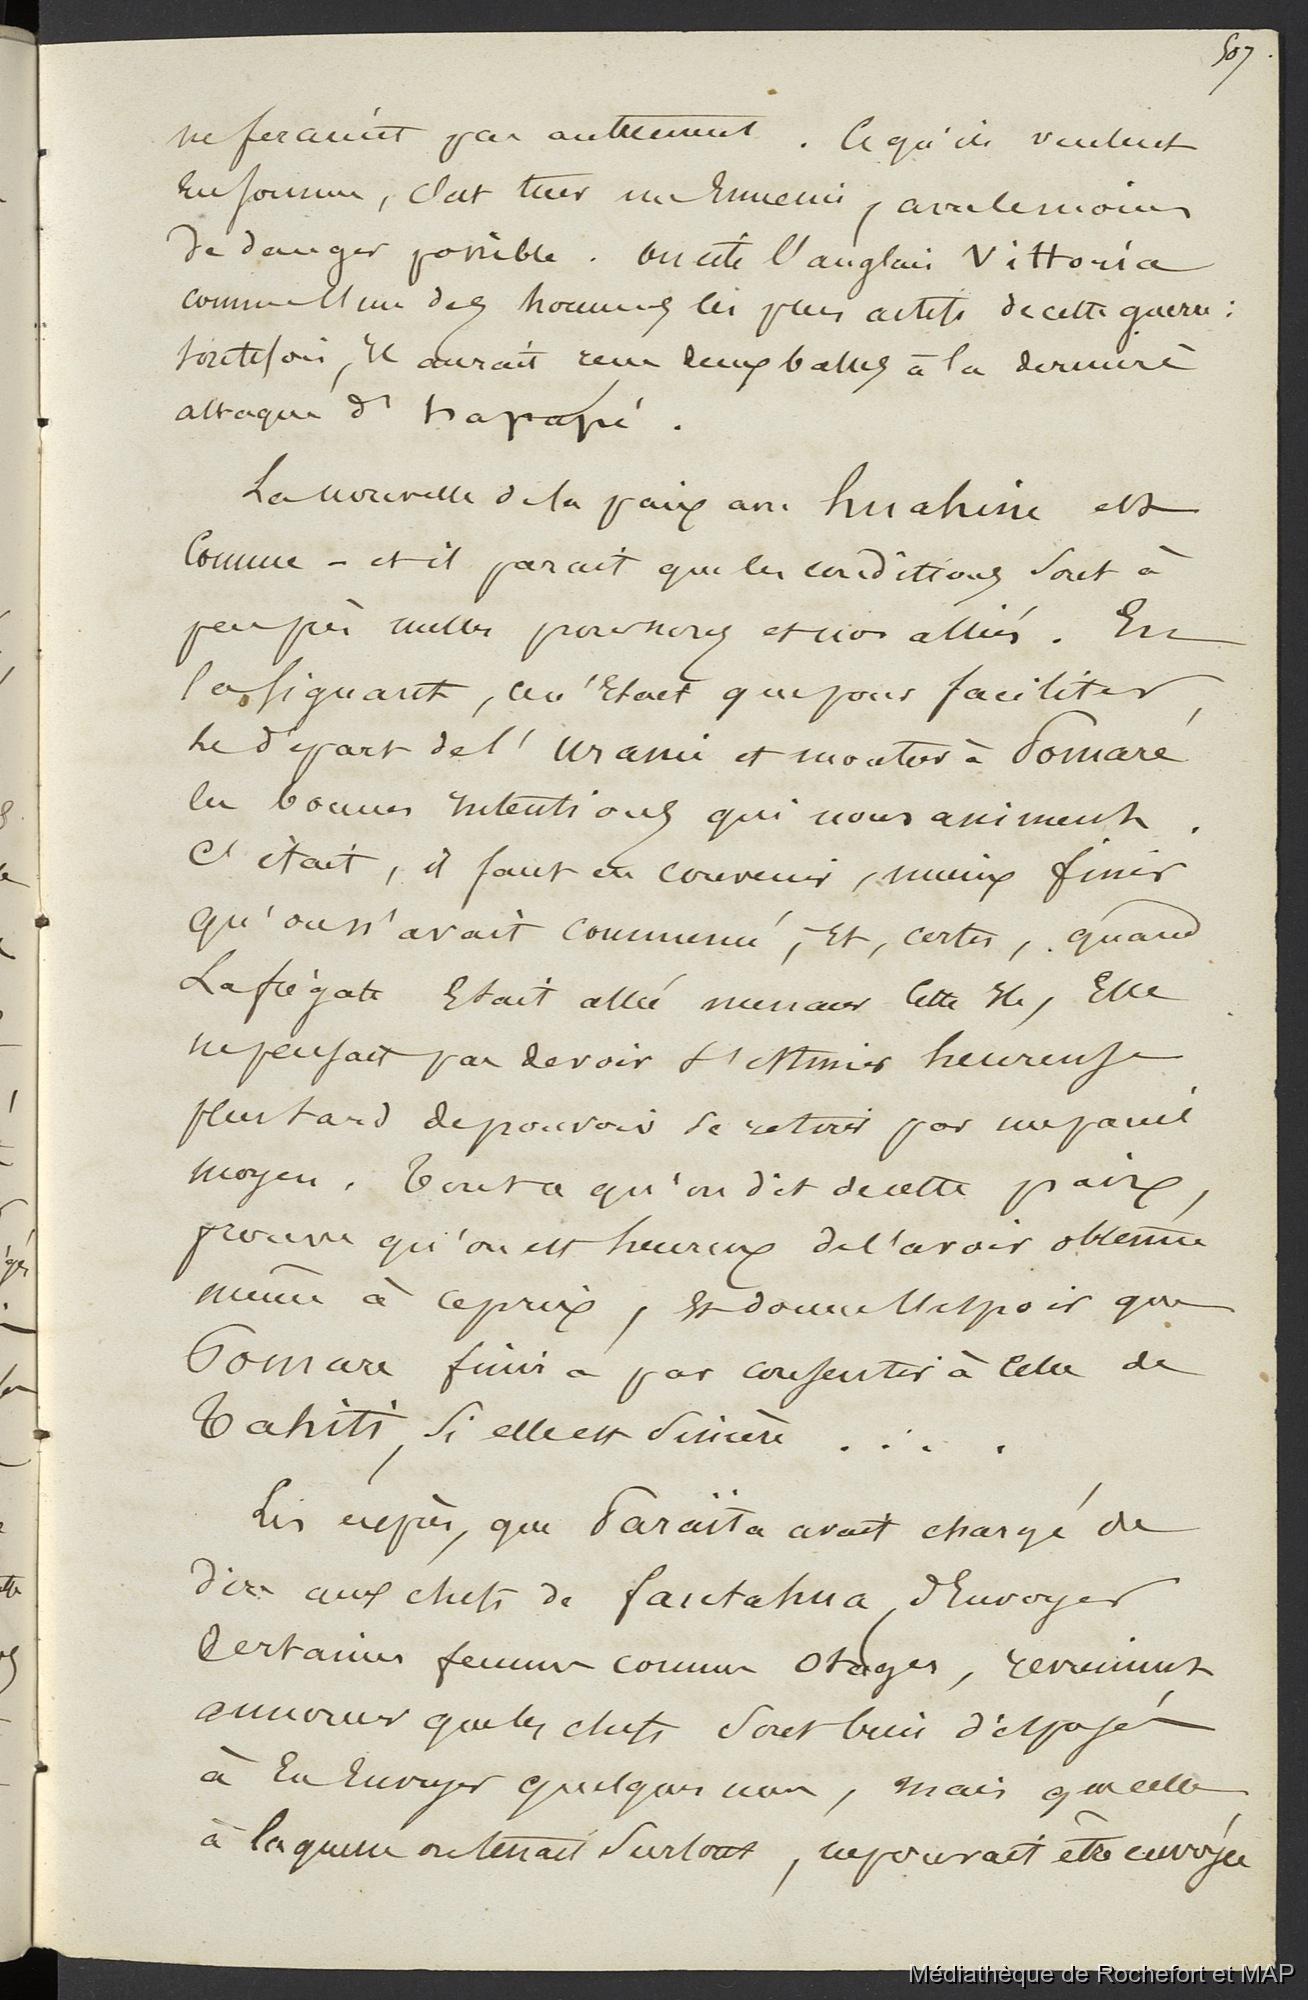 507.
ne feraient pas autrement. Ce qu'ils veulent
En somme, c'est tuer un Ennemi, avec le moins
de danger possible. On cite l'anglais Vittoria
comme l'un des hommes les plus actifs de cette guerre :
toutefois, Il aurait reçu deux balles à la dernière
attaque d'hapapé.
La nouvelle de la paix avec huahine est
Connue – et il parait que les conditions sont à
peu près nulles pour nous et nos alliés. En
la signant, ce n'Etait que pour faciliter
le départ de l'uranie et montrer à Pomaré
les bonnes intentions qui nous animent.
C'était, il faut en convenir, mieux finir
qu'on n'avait commencé, – Et, certes, quand
La frégate Etait allée menacer Cette Ile, Elle
ne pensait pas devoir s'estimer heureuse
plus tard de pouvoir se retirer par un pareil
moyen. Tout ce qu'on dit de cette paix,
prouve qu'on est heureux de l'avoir obtenue
même à ce prix, Et donne l'espoir que
Pomare finira par consentir à Celle de
Tahiti, si elle est sincère . . . .
Les exprès, que Paraïta avait chargé de
dire aux chefs de fautahua, d'Envoyer
Certaines femmes comme Otages, revinrent
annoncer que les chefs sont bien disposés
à En Envoyer quelques unes, mais que celle
à laquelle on tenait surtout, ne pouvait être envoyée
Médiathèque de Rochefort et MAP